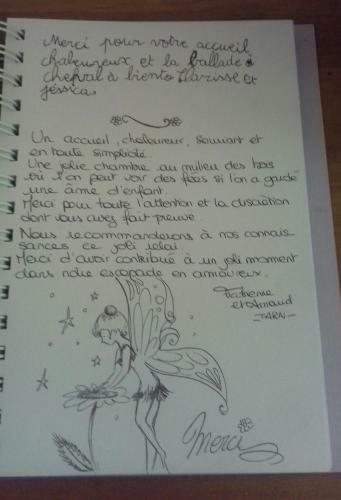 Merci pour votre accueil
chaleureux, et la ballade à
cheval à bientot Clarisse et
Jessica
Un accueil, chaleureux, souriant et
en toute simplicité.
Une jolie chambre au milieu des bois
où l'on peut voir des fées si l'on a gardé
une âme d'enfant.
Merci pour toute l'attention et la discrétion
dont vous avez fait preuve.
Nous recommanderons à nos connais-
sances ce joli relai.
Merci d'avoir contribué à un joli moment
dans notre escapade en amoureux.
Fabienne
et Arnaud
-TARN-
Merci